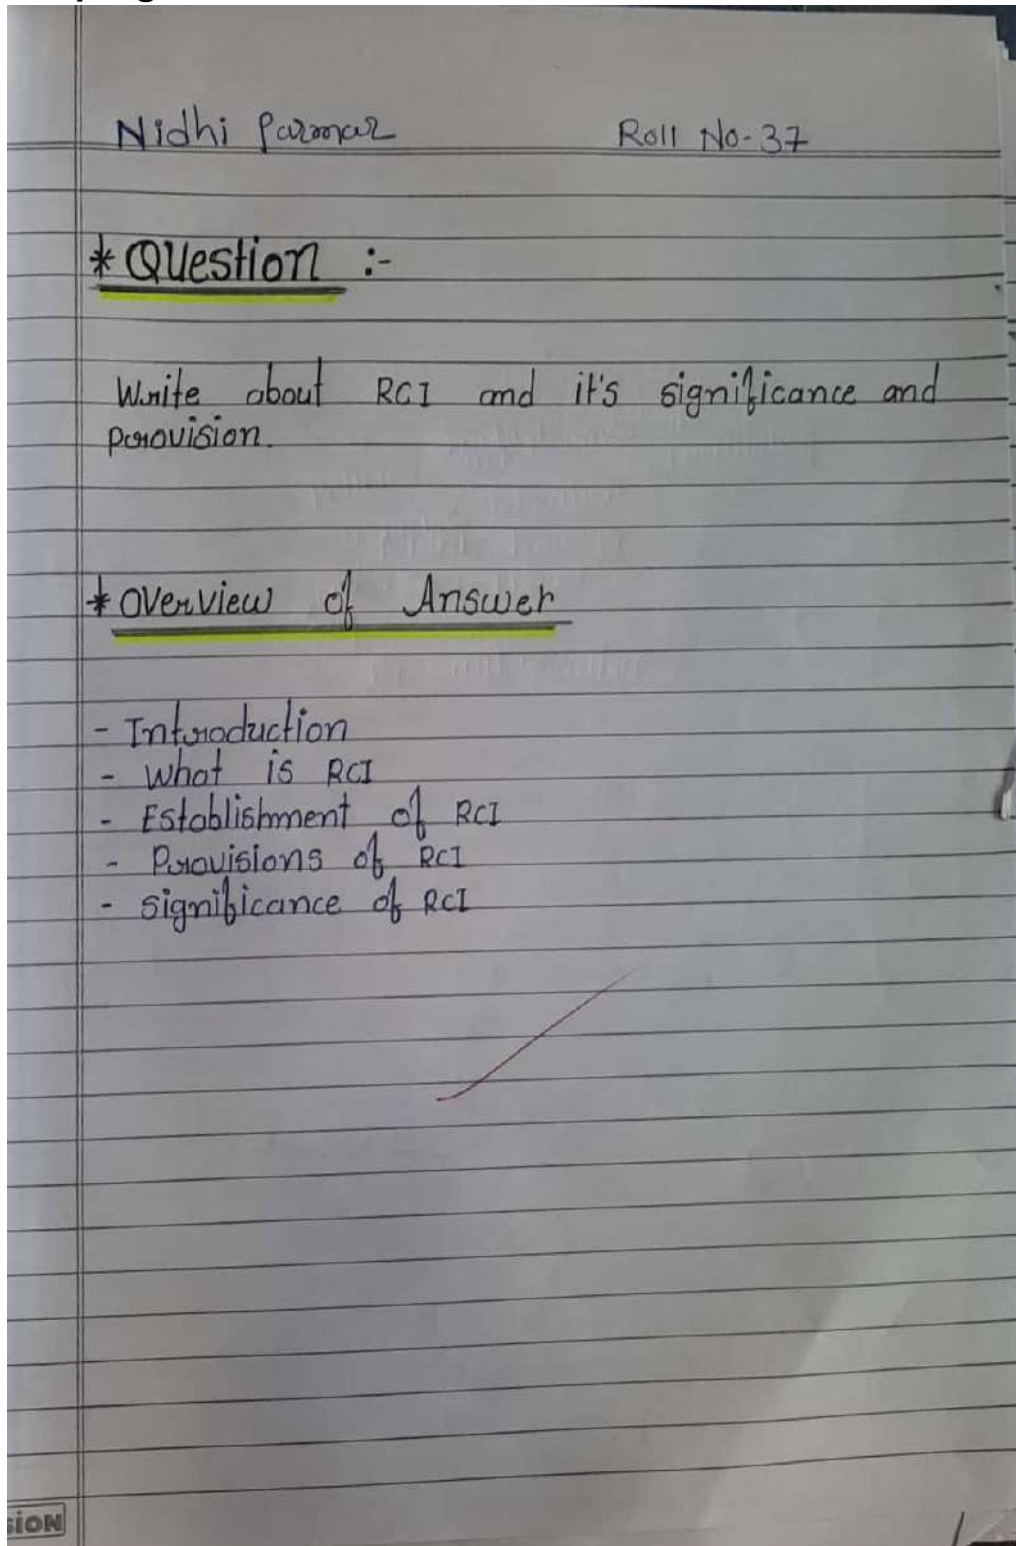 Nidhi Parmar Roll No-37
* Question :-
Write about RCI and it's significance and
provision.
* Overview of Answer
- Introduction
- What is RCI
- Establishment of RCI
- Provisions of RCI
- significance of RCI